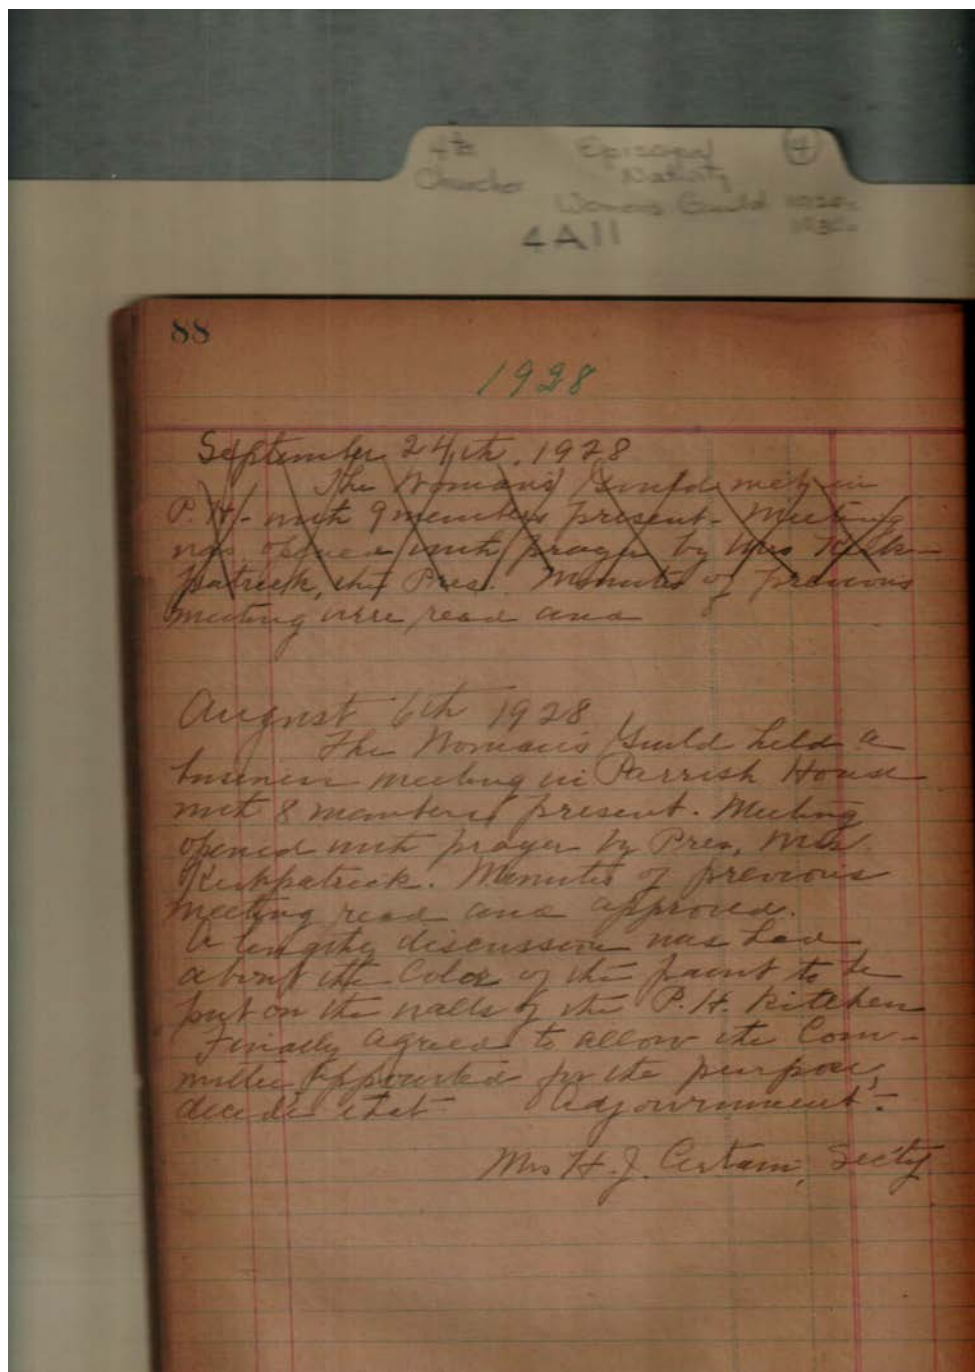 4th Episcopal 4
Churches Nativity
Womens Guild 1920s
1930s
4A11
88
1928
September 24th, 1928
The Woman's Guild met in
P.H. with 9 members present. Meeting
was opened with prayer by Mrs Kirk-
patrick, the Pres. Minutes of previous
meeting were read and
August 6th 1928
The Woman's Guild held a
business meeting in Parrish House
with 8 members present. Meeting
opened with prayer by Pres, Mrs.
Kirkpatrick. Minutes of previous
meeting read and approved.
A lengthy discussion was had
about the Color of the paint to be
put on the walls of the P.H. Kitchen
Finally agreed to allow the Com-
mittee appointed for the purpose,
decide that Adjournment.-
Mrs H. J. Certain, Sec'ty